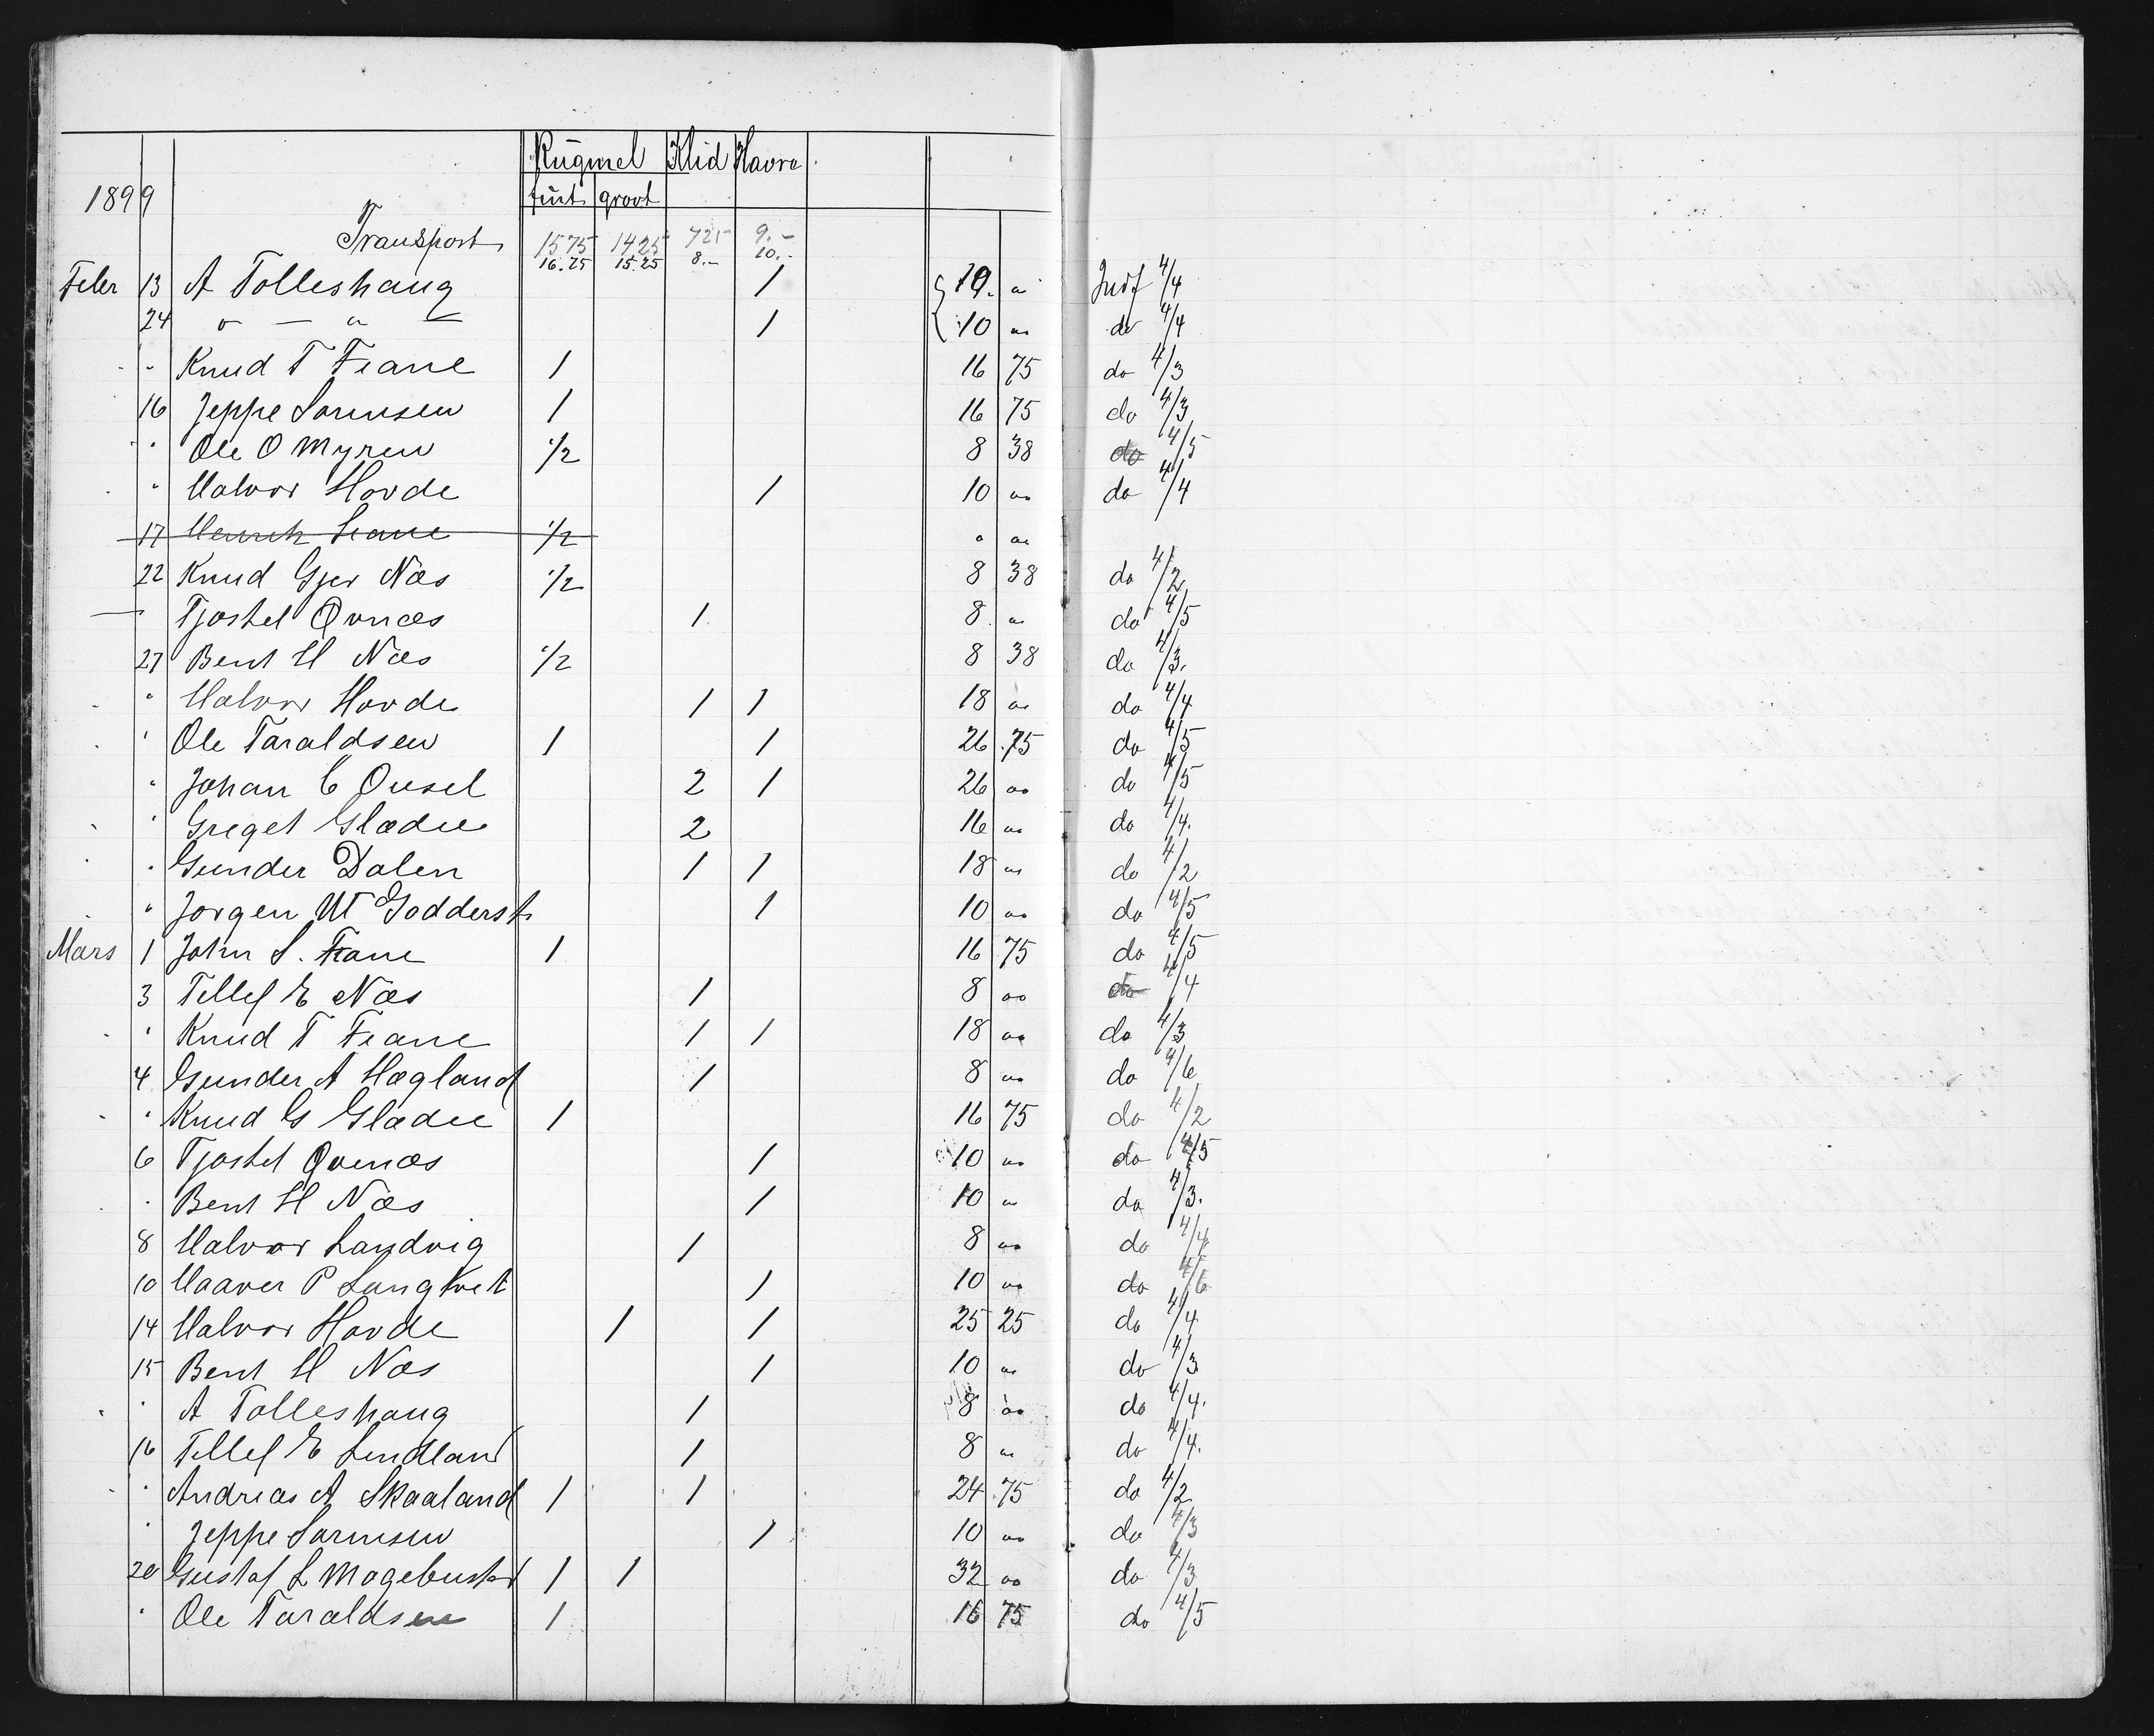 Rugmel Klid Havre
1899 fint grovt
Transport 1575 1425 725 9.-
16.75 15.25 8.- 10.-
Febr 13 A Tolleshaug 1 10. " Indf 4/4
24 " — " — 1 10 " do 4/4
" " Knud T Fiane 1 16 75 do 4/3
16 Jeppe Sørensen 1 16 75 do 4/3
" " Ole O Myren 1/2 8 38 do 4/5
" " Halvor Hovde 1 10 oo do 4/4
17 Henrik Fiane 1/2 " "
22 Knud Gjer Næs 1/2 8 38 do 4/2
— " Tjøstel Qvnæs 1 8 " do 4/5
27 Bent H Næs 1/2 8 38 do 4/3.
" " Halvor Hovde 1 1 18 oo do 4/4
" " Ole Taraldsen 1 1 26 75 do 4/5
" Johan C Ousel 2 1 26 oo do 4/5
" " Greget Gladu 2 16 oo do 4/4.
" " Gunder Dalen 1 1 18 oo do 4/2
" " Jørgen W Godderst 1 10 oo do 4/5
Mars 1 John S. Fiane 1 16 75 do 4/5
3 Tellef E Næs 1 8 oo do 4/4
" " Knud T Fiane 1 1 18 oo do 4/3
4 Gunder A Høgland 1 8 oo do 4/6
" " Knud G Gladu 1 16 75 do 4/2
6 Tjøstel Qvenæs 1 10 oo do 4/5
" " Bent H Næs 1 10 " do 4/3.
8 Halvor Landvig 1 8 oo do 4/4
10 Haaver P Langkvet 1 10 oo do 4/6
14 Halvor Hovde 1 1 25 25 do 4/4
15 Bent H Næs 1 10 " do 4/3
" " A Tolleshaug 1 8 oo do 4/4.
16 Tellef E Lindland 1 8 " do 4/4.
" " Andreas A Skaaland 1 1 24 75 do 4/2
" Jeppe Sørensen 1 10 oo do 4/3
20 Gustaf L Mogebustad 1 1 32 oo do 4/3
" Ole Taraldsen 1 16 75 do 4/5